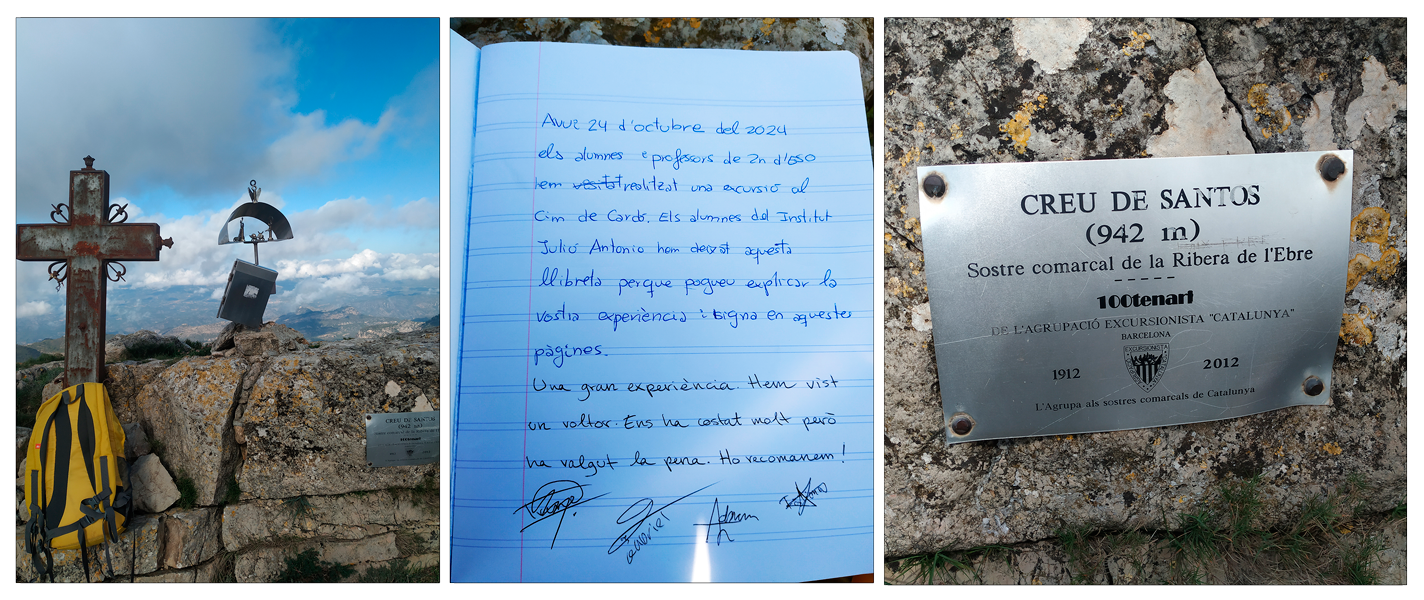 CREU DE SANTOS
(942 m)
100tenari
Avui 24 d'octubre del 2024
els alumnes e profesors de 2n d'ESO
hem vesitat realitzat una excursió al
Cim de Cardó. Els alumnes del Institut
Julio Antonio hem deixat aquesta
llibreta perque pogueu explicar la
vostra experiència i signa en aquestes
pàgines.
Una gran experiència. Hem vist
un voltor. Ens ha costat molt però
ha valgut la pena. Ho recomanem!
Gabriel
Adrian
CREU DE SANTOS
(942 m)
Sostre comarcal de la Ribera de l'Ebre
100tenari
DE L'AGRUPACIÓ EXCURSIONISTA "CATALUNYA"
BARCELONA
EXCURSIONISTA
1912 2012
L'Agrupa als sostres comarcals de Catalunya